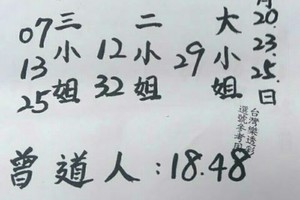 20.23.25.日
大小姐
29
二小姐
12
32
三小姐
07
13
25
台灣樂透彩
選號參考用
曾道人:18.48